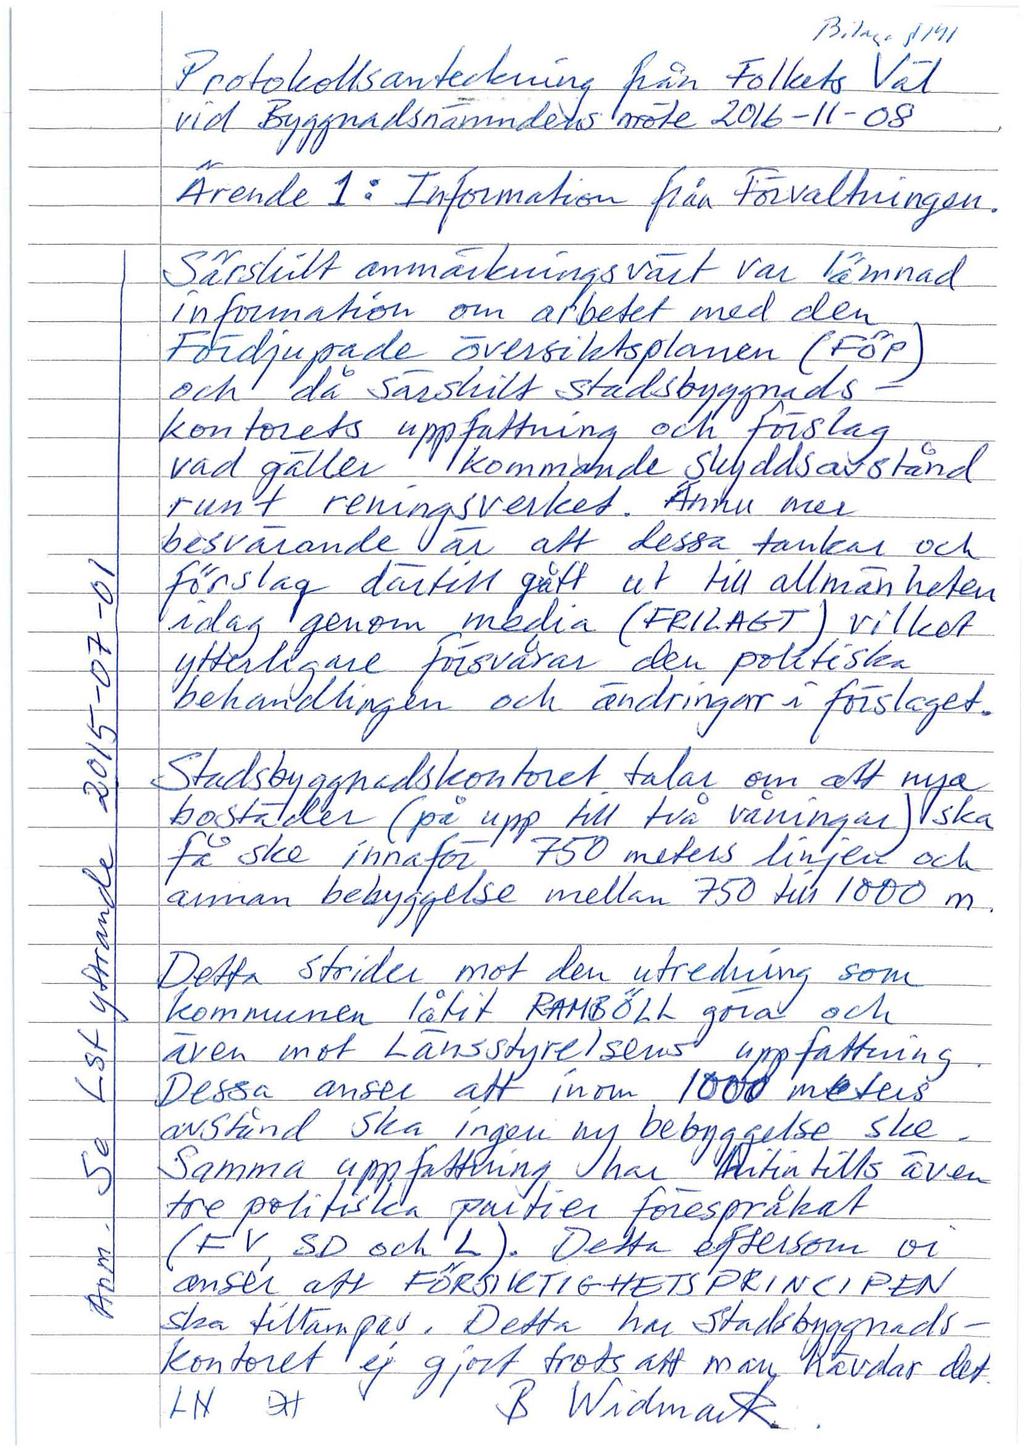 Bilaga § 141
Protokollsanteckning från Folkets Väl
vid Byggnadsnämndens möte 2016-11-08
Ärende 1: Information från Förvaltningen.
Särskilt anmärkningsvärt var lämnad
information om arbetet med den
Fördjupade översiktsplanen (FÖP)
och då särskilt stadsbyggnads-
kontorets uppfattning och förslag
vad gäller kommande skyddsavstånd
runt reningsverket. Ännu mer
besvärande är att dessa tankar och
förslag därtill gått ut till allmänheten
idag genom media (FRILAGT) vilket
ytterligare försvårar den politiska
behandlingen och ändringar i förslaget.
Stadsbyggnadskontoret talar om att nya
bostäder (på upp till två våningar) ska
få ske innaför 750 meters linjen och
annan bebyggelse mellan 750 till 1000 m.
Detta strider mot den utredning som
kommunen låtit RAMBÖLL göra och
även mot Länsstyrelsens uppfattning.
Dessa anser att inom 1000 meters
avstånd ska ingen ny bebyggelse ske.
Samma uppfattning har hitintills även
tre politiska partier förespråkat
(FV, SD och L). Detta eftersom vi
anser att FÖRSIKTIGHETSPRINCIPEN
ska tillämpas. Detta har Stadsbyggnads-
kontoret ej gjort trots att man hävdar det.
LN B Widmark
Anm. Se Lst yttrande 2015-07-01